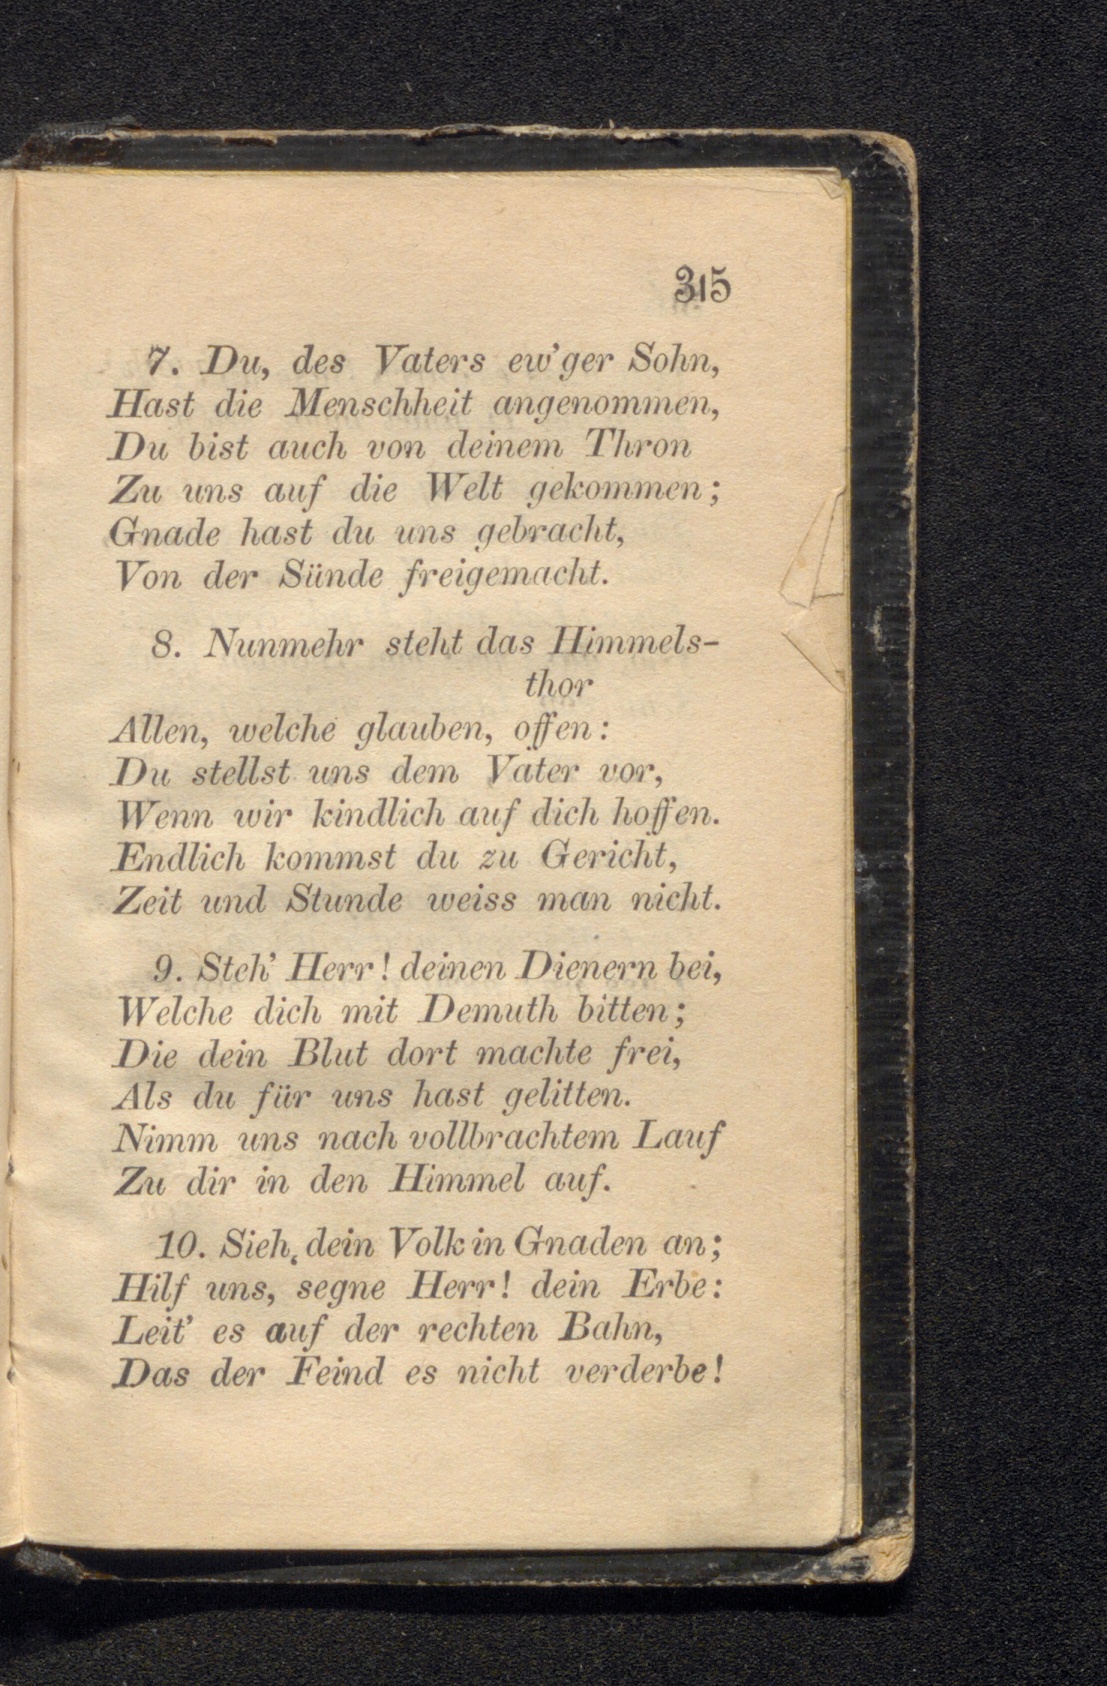 315
7. Du, des Vaters ew'ger Sohn,
Hast die Menschheit angenommen,
Du bist auch von deinem Thron
Zu uns auf die Welt gekommen;
Gnade hast du uns gebracht,
Von der Sünde freigemacht.
8. Nunmehr steht das Himmels-
thor
Allen, welche glauben, offen:
Du stellst uns dem Vater vor,
Wenn wir kindlich auf dich hoffen.
Endlich kommst du zu Gericht,
Zeit und Stunde weiss man nicht.
9. Steh' Herr! deinen Dienern bei,
Welche dich mit Demuth bitten;
Die dein Blut dort machte frei,
Als du für uns hast gelitten.
Nimm uns nach vollbrachtem Lauf
Zu dir in den Himmel auf.
10. Sieh, dein Volk in Gnaden an;
Hilf uns, segne Herr! dein Erbe:
Leit' es auf der rechten Bahn,
Das der Feind es nicht verderbe!